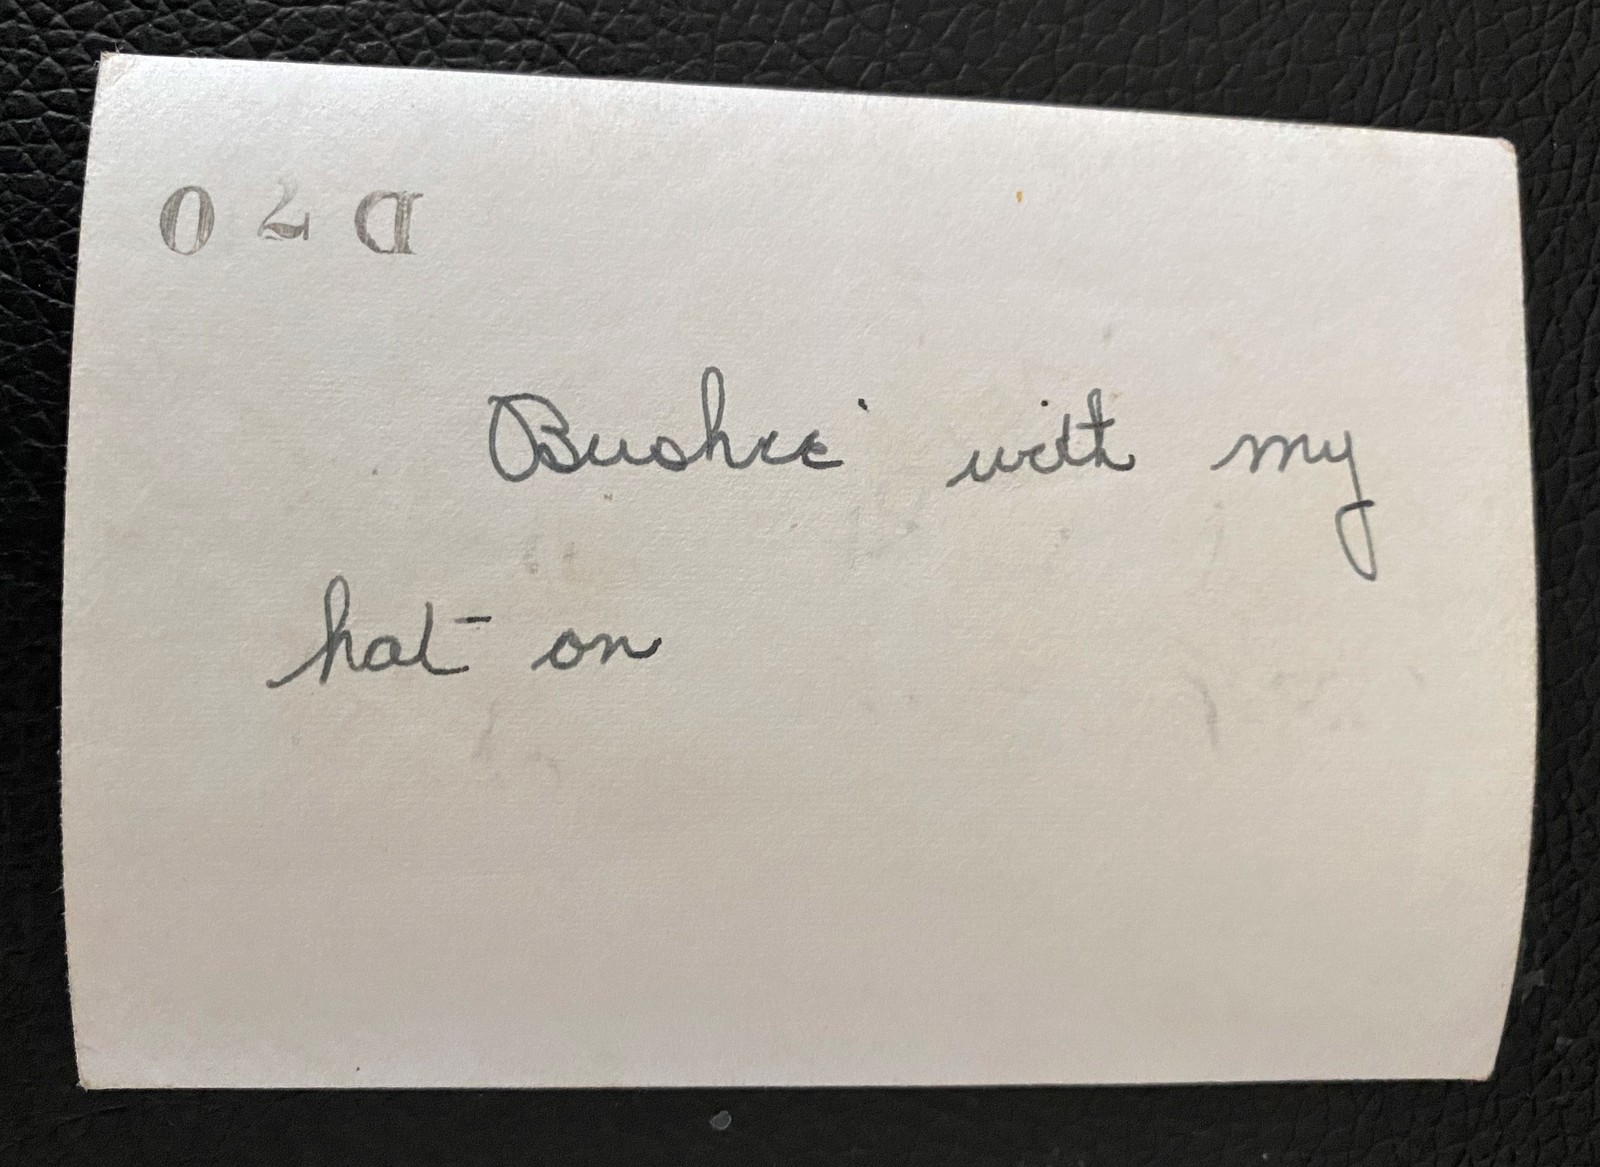 D70
Bushie with my
hat on